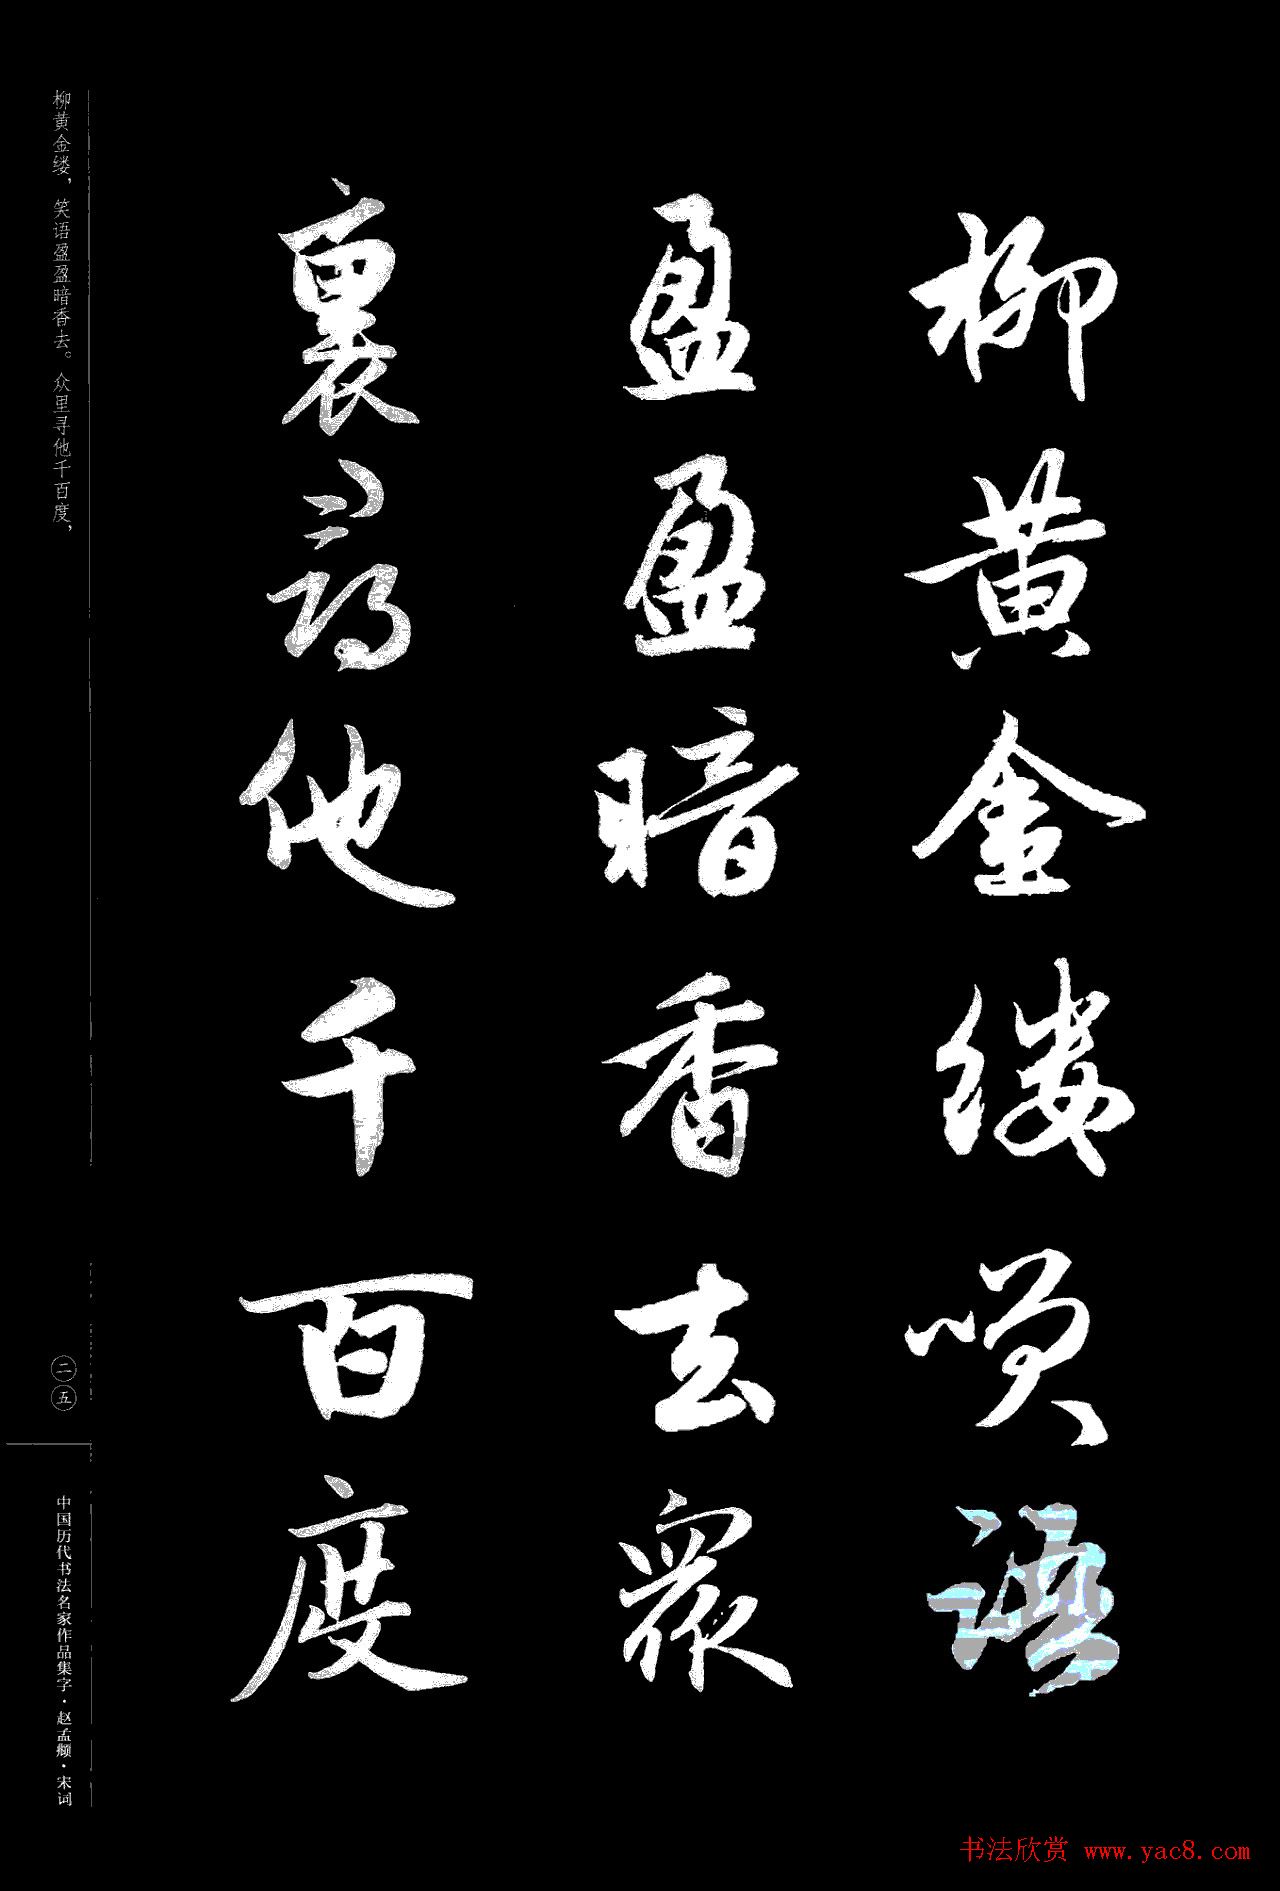 柳黄金缕笑语
盈盈暗香去眾
裏尋他千百度
柳黄金缕，笑语盈盈暗香去。众里寻他千百度，
二五
中国历代书法名家作品集字·赵孟頫·宋词
书法欣赏 www.yac8.com